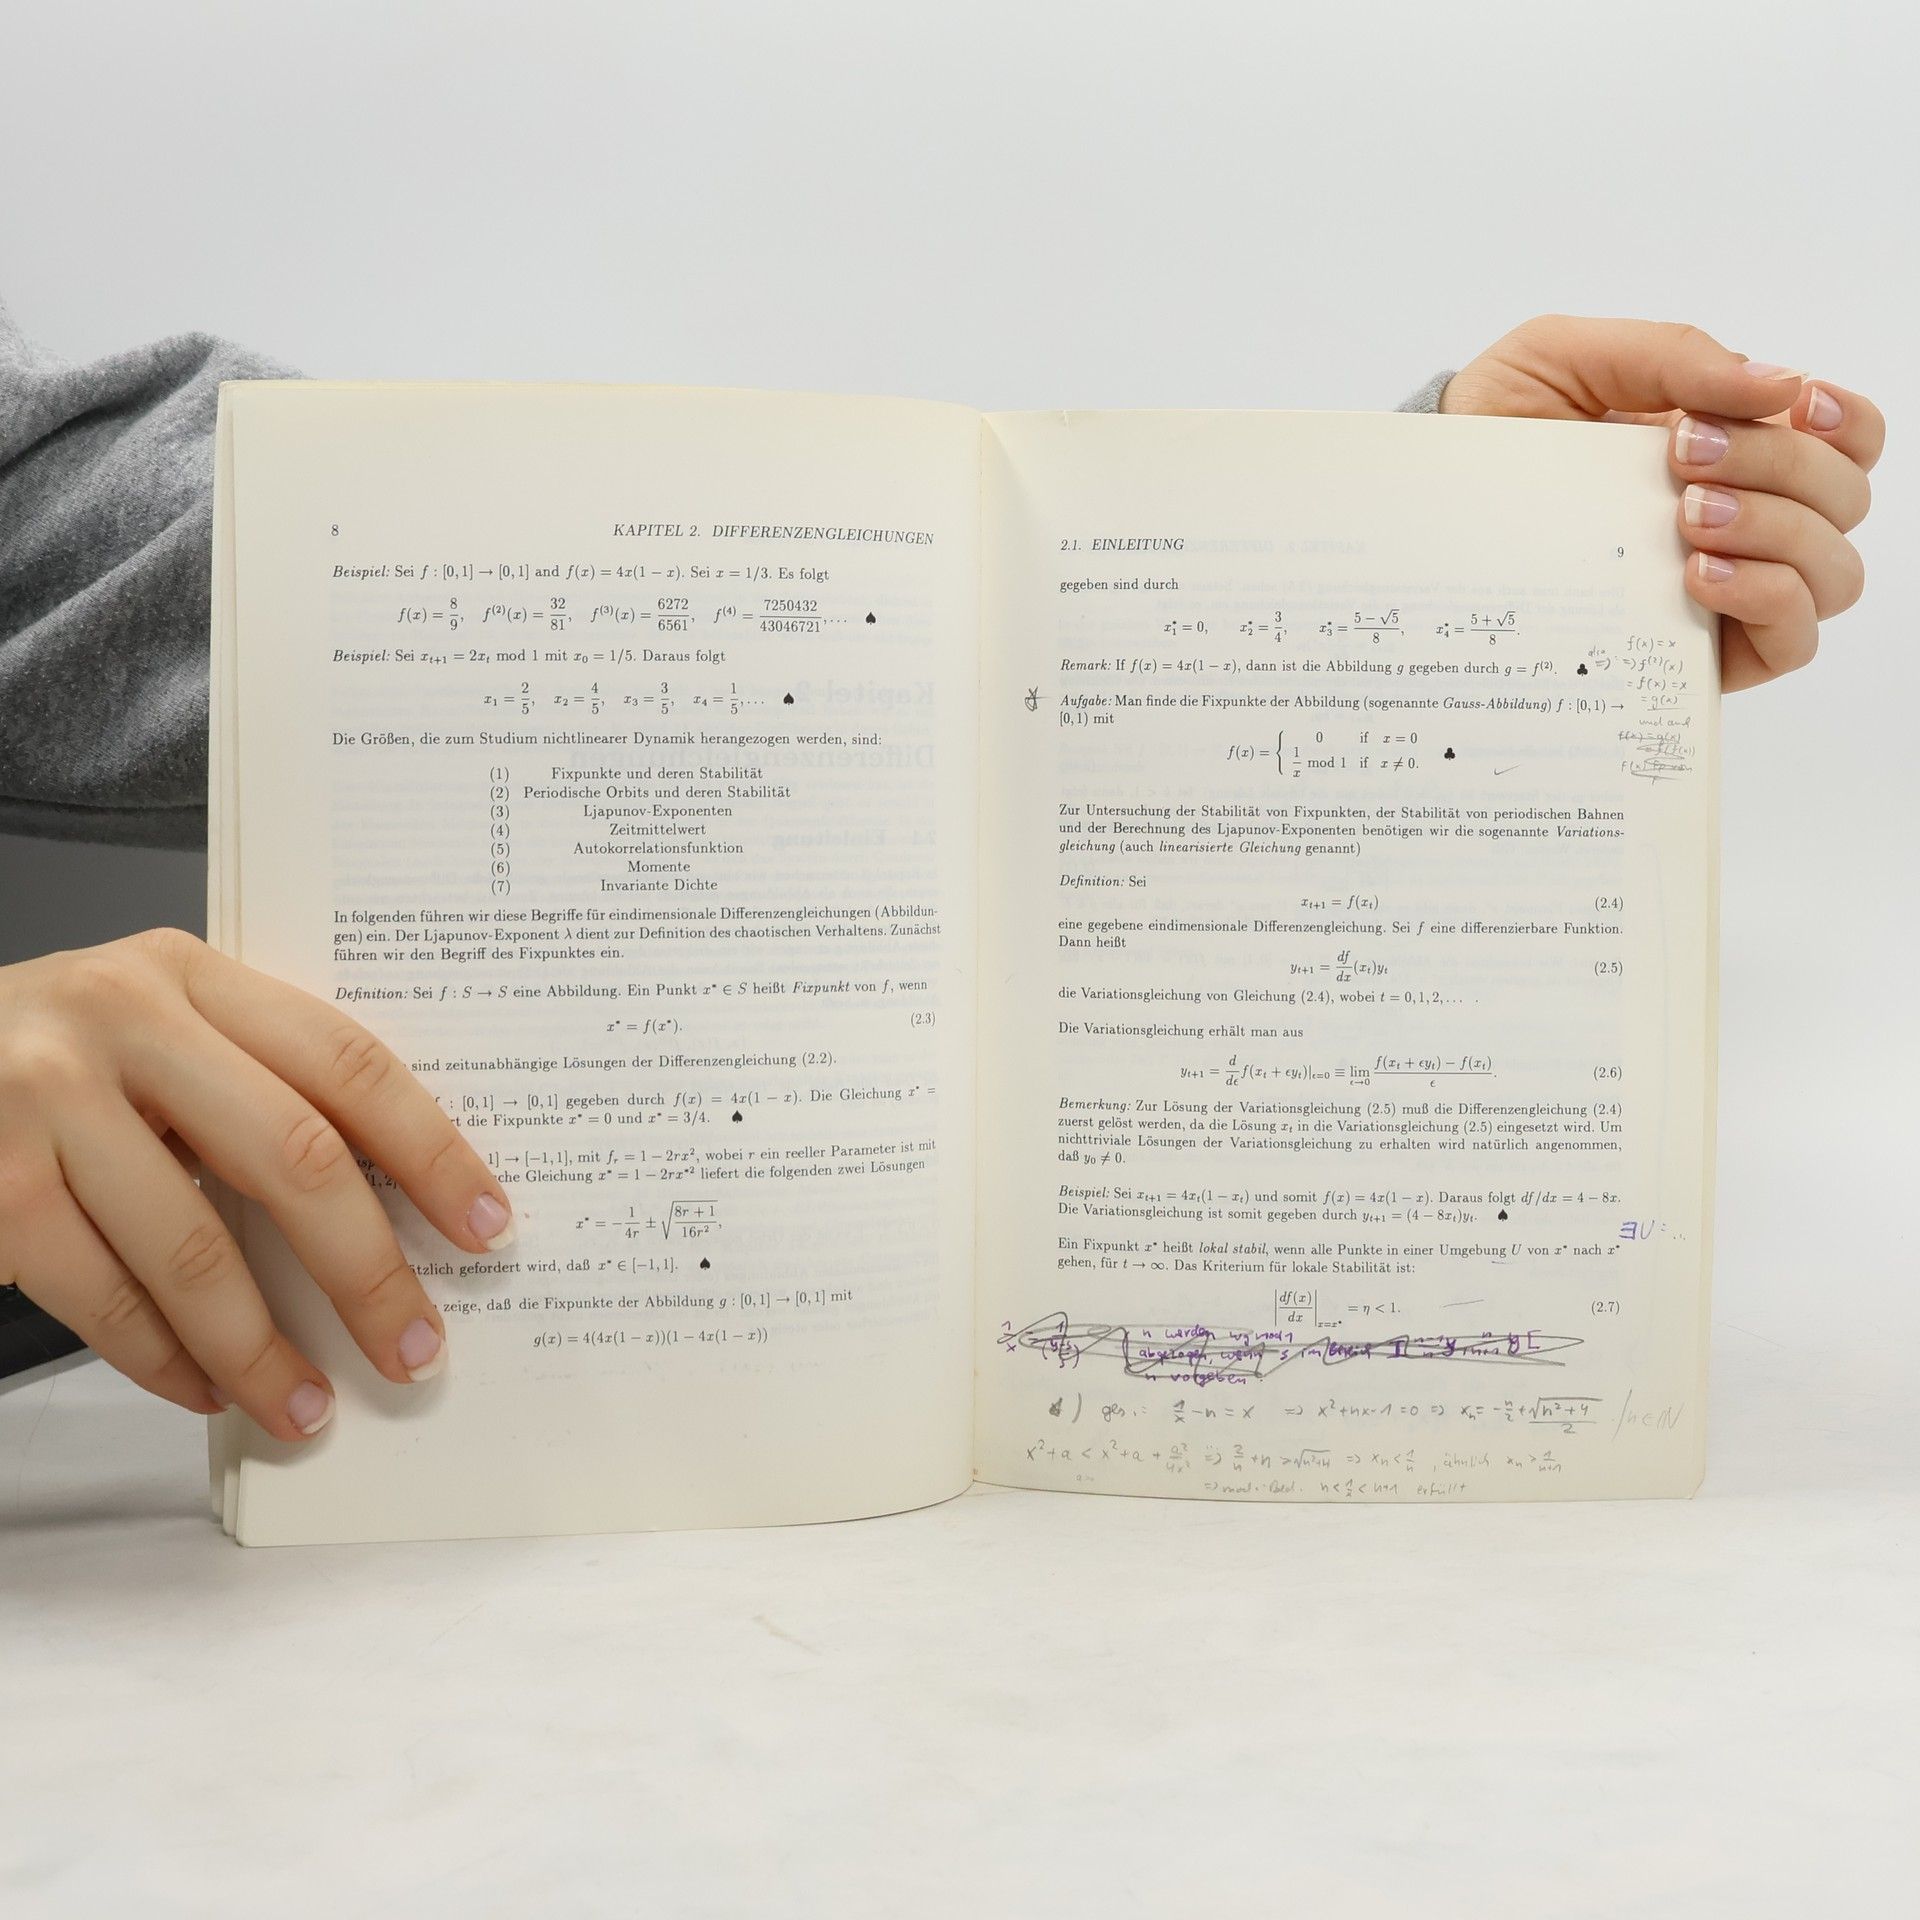 8 KAPITEL 2. DIFFERENZENGLEICHUNGEN
Beispiel: Sei f : [0,1] → [0,1] and f(x) = 4x(1 − x). Sei x = 1/3. Es folgt
f(x) = 8/9, f⁽²⁾(x) = 32/81, f⁽³⁾(x) = 6272/6561, f⁽⁴⁾ = 7250432/43046721, ... ♠
Beispiel: Sei xₜ₊₁ = 2xₜ mod 1 mit x₀ = 1/5. Daraus folgt
x₁ = 2/5, x₂ = 4/5, x₃ = 3/5, x₄ = 1/5, ... ♠
Die Größen, die zum Studium nichtlinearer Dynamik herangezogen werden, sind:
(1) Fixpunkte und deren Stabilität
(2) Periodische Orbits und deren Stabilität
(3) Ljapunov-Exponenten
(4) Zeitmittelwert
(5) Autokorrelationsfunktion
(6) Momente
(7) Invariante Dichte
In folgenden führen wir diese Begriffe für eindimensionale Differenzengleichungen (Abbildun-
gen) ein. Der Ljapunov-Exponent λ dient zur Definition des chaotischen Verhaltens. Zunächst
führen wir den Begriff des Fixpunktes ein.
Definition: Sei f : S → S eine Abbildung. Ein Punkt x* ∈ S heißt Fixpunkt von f, wenn
x* = f(x*). (2.3)
sind zeitunabhängige Lösungen der Differenzengleichung (2.2).
: [0,1] → [0,1] gegeben durch f(x) = 4x(1 − x). Die Gleichung x* =
die Fixpunkte x* = 0 und x* = 3/4. ♠
1] → [−1,1], mit fᵣ = 1 − 2rx², wobei r ein reeller Parameter ist mit
che Gleichung x* = 1 − 2rx*² liefert die folgenden zwei Lösungen
x* = −1/4r ± √((8r + 1)/16r²),
ätzlich gefordert wird, daß x* ∈ [−1,1]. ♠
zeige, daß die Fixpunkte der Abbildung g : [0,1] → [0,1] mit
g(x) = 4(4x(1 − x))(1 − 4x(1 − x))
2.1. EINLEITUNG 9
gegeben sind durch
x₁* = 0, x₂* = 3/4, x₃* = (5 − √5)/8, x₄* = (5 + √5)/8.
Remark: If f(x) = 4x(1 − x), dann ist die Abbildung g gegeben durch g = f⁽²⁾. ♣
Aufgabe: Man finde die Fixpunkte der Abbildung (sogenannte Gauss-Abbildung) f : [0,1) →
[0,1) mit
f(x) = { 0 if x = 0
1/x mod 1 if x ≠ 0. ♣
f(x) = x
also => => f⁽²⁾(x)
= f(x) = x
= g(x)
und
Zur Untersuchung der Stabilität von Fixpunkten, der Stabilität von periodischen Bahnen
und der Berechnung des Ljapunov-Exponenten benötigen wir die sogenannte Variations-
gleichung (auch linearisierte Gleichung genannt)
Definition: Sei
xₜ₊₁ = f(xₜ) (2.4)
eine gegebene eindimensionale Differenzengleichung. Sei f eine differenzierbare Funktion.
Dann heißt
yₜ₊₁ = df/dx (xₜ)yₜ (2.5)
die Variationsgleichung von Gleichung (2.4), wobei t = 0, 1, 2, ... .
Die Variationsgleichung erhält man aus
yₜ₊₁ = d/dϵ f(xₜ + ϵyₜ)|ϵ=0 ≡ lim ϵ→0 (f(xₜ + ϵyₜ) − f(xₜ))/ϵ. (2.6)
Bemerkung: Zur Lösung der Variationsgleichung (2.5) muß die Differenzengleichung (2.4)
zuerst gelöst werden, da die Lösung xₜ in die Variationsgleichung (2.5) eingesetzt wird. Um
nichttriviale Lösungen der Variationsgleichung zu erhalten wird natürlich angenommen,
daß y₀ ≠ 0.
Beispiel: Sei xₜ₊₁ = 4xₜ(1 − xₜ) und somit f(x) = 4x(1 − x). Daraus folgt df/dx = 4 − 8x.
Die Variationsgleichung ist somit gegeben durch yₜ₊₁ = (4 − 8xₜ)yₜ. ♠
∃U: ...
Ein Fixpunkt x* heißt lokal stabil, wenn alle Punkte in einer Umgebung U von x* nach x*
gehen, für t → ∞. Das Kriterium für lokale Stabilität ist:
|df(x)/dx|ₓ₌ₓ* = η < 1. (2.7)
n werden wg mod 1
abgezogen, wenn
n vorgeben
) ges.: 1/x − n = x => x² + nx − 1 = 0 => xₙ = −n/2 + √(n² + 4)/2 / n ∈ ℕ
x² + a < x² + a + a²/4x² => 2/n + n > √(n²+4) => xₙ < 1/n, ähnlich xₙ > 1/(n+1)
=> mod-Bed. n < 1/x < n+1 erfüllt